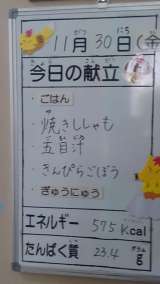 11月30日(金
今日の献立
・ごはん
・焼きししゃも
・五目汁
・きんぴらごぼう
・ぎゅうにゅう
エネルギー 575 Kcal
たんぱく質 23.4 g